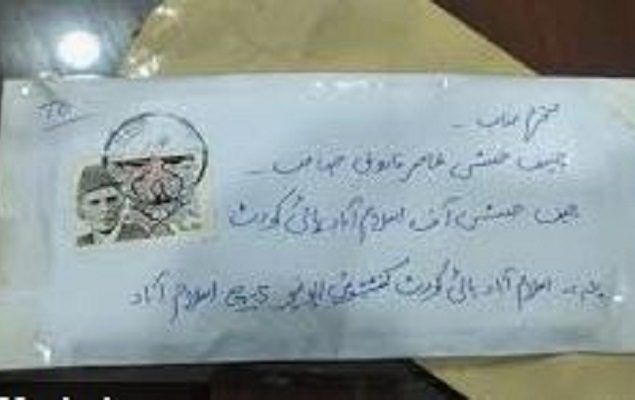 To,
محترم جناب۔
چیف جسٹس عامر فاروق صاحب۔
چیف جسٹس آف اسلام آباد ہائی کورٹ
پتہ:۔ اسلام آباد ہائی کورٹ کنسٹیٹیوشن ایونیو اسلام آباد